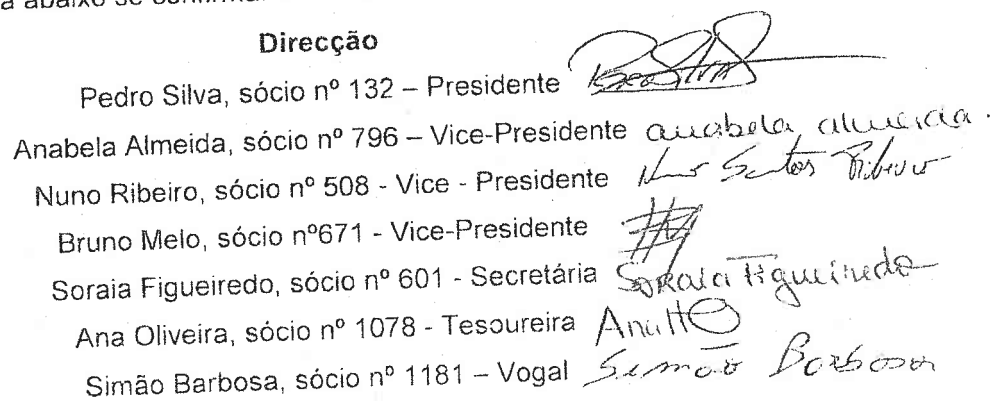 a abaixo se
Direcção
Pedro Silva, sócio nº 132 – Presidente
Anabela Almeida, sócio nº 796 – Vice-Presidente anabela almeida.
Nuno Ribeiro, sócio nº 508 - Vice - Presidente Nuno Santos Ribeiro
Bruno Melo, sócio nº671 - Vice-Presidente
Soraia Figueiredo, sócio nº 601 - Secretária Soraia Figueiredo
Ana Oliveira, sócio nº 1078 - Tesoureira
Simão Barbosa, sócio nº 1181 – Vogal Simão Barbosa